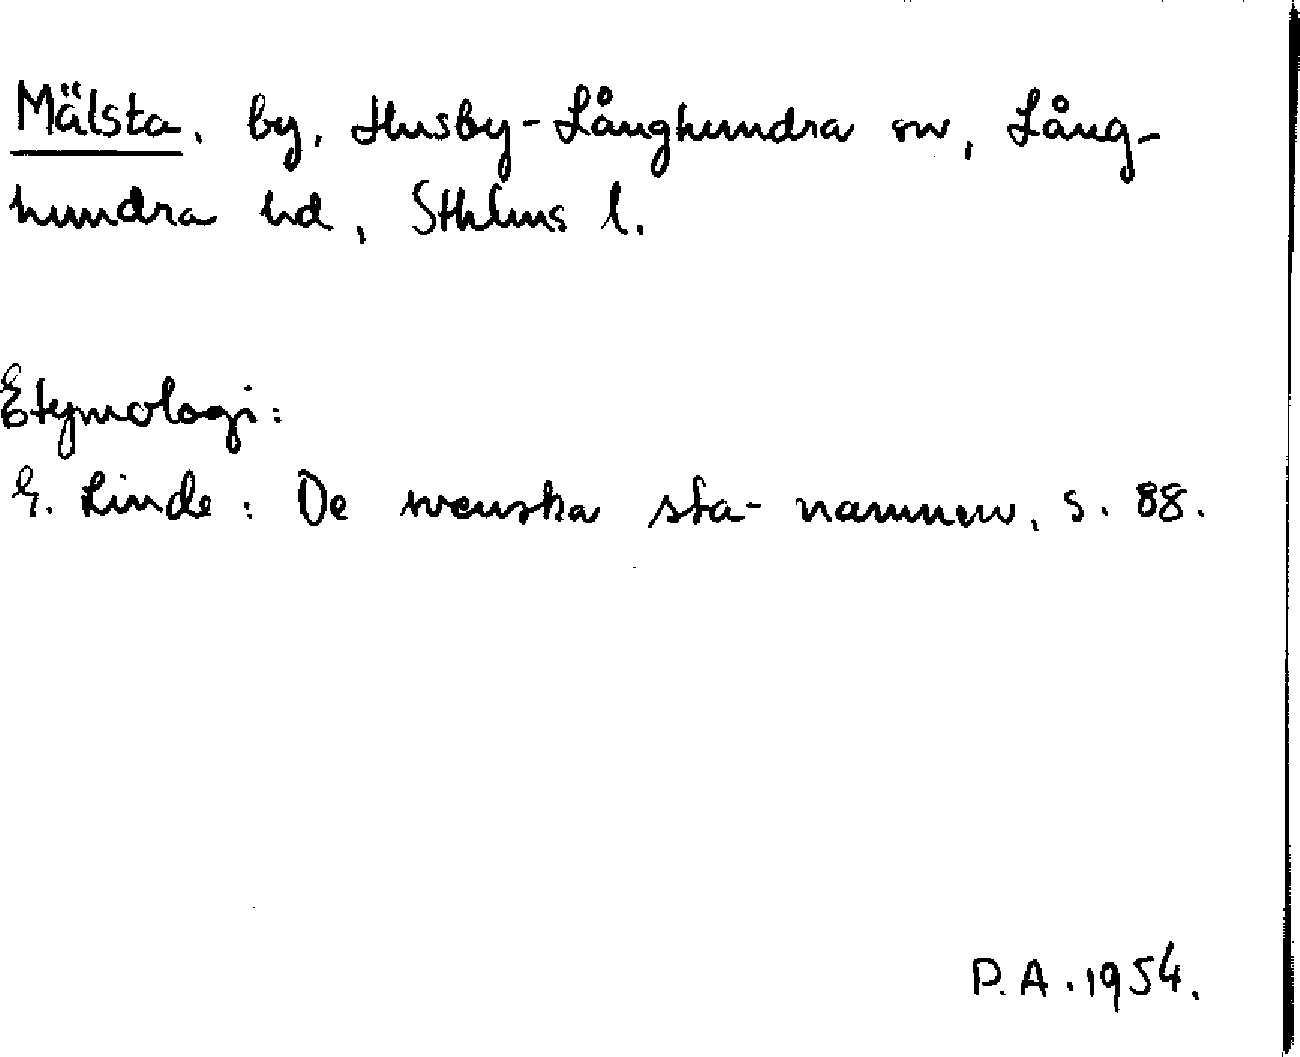 Mälsta, by, Husby-Långhundra sn, Lång-
hundra hd, Sthlms l.
Etymologi:
G. Linde: De svenska sta-namnen, s. 88.
D.A. 1954.